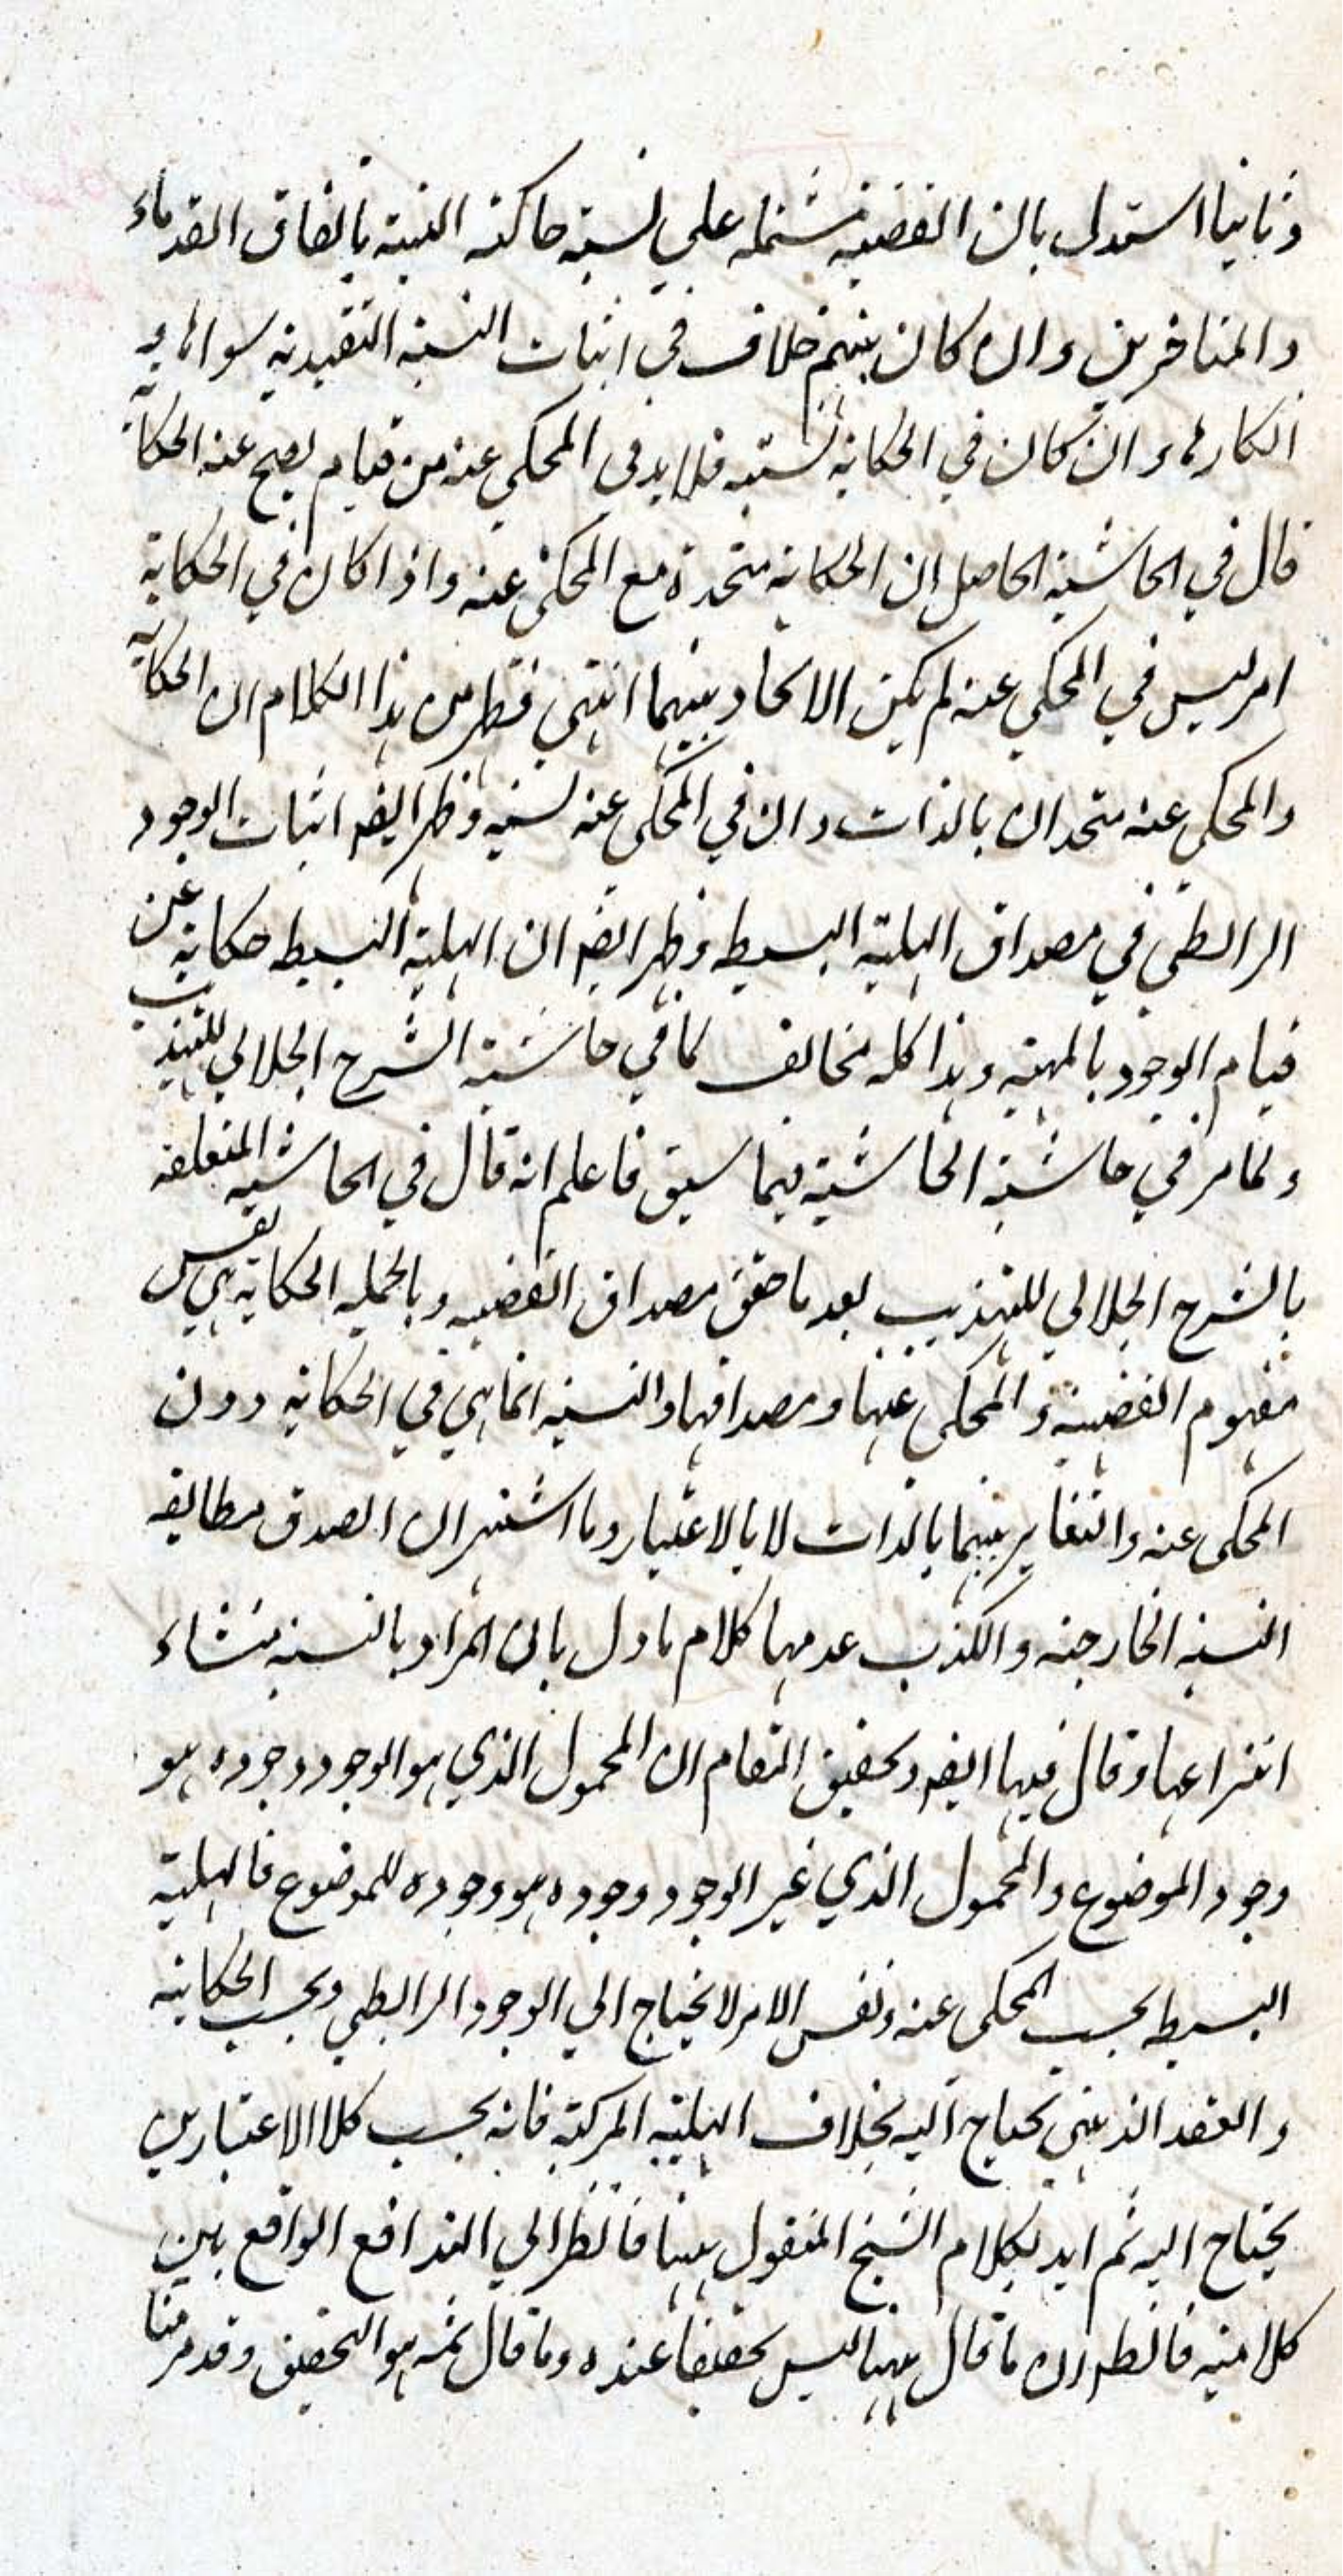 وثانيا استدل بان القضية مشتملة علي نسبة حاكية البتة باتفاق القدماء
والمتاخرين وان كان بينهم خلاف في اثبات النسبة التقييدية سواها و
انكارها وان كان في الحكاية نسبته فلا بد في المحكي عنه من قيام يصح عنه الحكاية
قال في الحاشية الحاصل ان الحكاية متحدة مع المحكي عنه واذا كان في الحكاية
امر ليس في المحكي عنه لم يكن الاتحاد بينهما انتهي فظهر من هذا الكلام ان الحكاية
والمحكي عنه متحدان بالذات وان في المحكي عنه نسبة وظهر ايضه اثبات الوجود
الرابطي في مصداق الهلية البسيطه وظهر ايضه ان الهلية البسيطه حكاية عن
قيام الوجود بالمهية وهذا كله مخالف لما في حاشية الشرح الجلالي للتهذيب
ولما مر في حاشية الحاشية فيما سبق فاعلم انه قال في الحاشية المتعلقة
بالشرح الجلالي للتهذيب بعد ما حقق مصداق القضيه وبالجمله الحكاية هي نفس
مفهوم القضية والمحكي عنها ومصداقها والنسبة انما هي في الحكاية دون
المحكي عنه والتغاير بينهما بالذات لا بالاعتبار وما اشتهر ان الصدق مطابقه
النسبة الخارجية والكذب عدمها كلام ماول بان المراد بالنسبة منشاء
انتزاعها وقال فيها ايضه وتحقيق المقام ان المحمول الذي هو الوجود وجوده هو
وجود الموضوع والمحمول الذي غير الوجود وجوده هو وجوده للموضوع فالهلية
البسيطه بحسب المحكي عنه ونفس الامر لا يحتاج الي الوجود الرابطي وبحسب الحكاية
والعقد الذهني تحتاج اليه بخلاف الهلية المركبة فانه بحسب كلا الاعتبارين
يحتاج اليه ثم ايد بكلام الشيخ المنقول ههنا فانظر الي التدافع الواقع بين
كلاميه فانظر ان ما قال ههنا ليس تحقيقا عنده وما قال ثمه هو التحقيق وقد مر منا